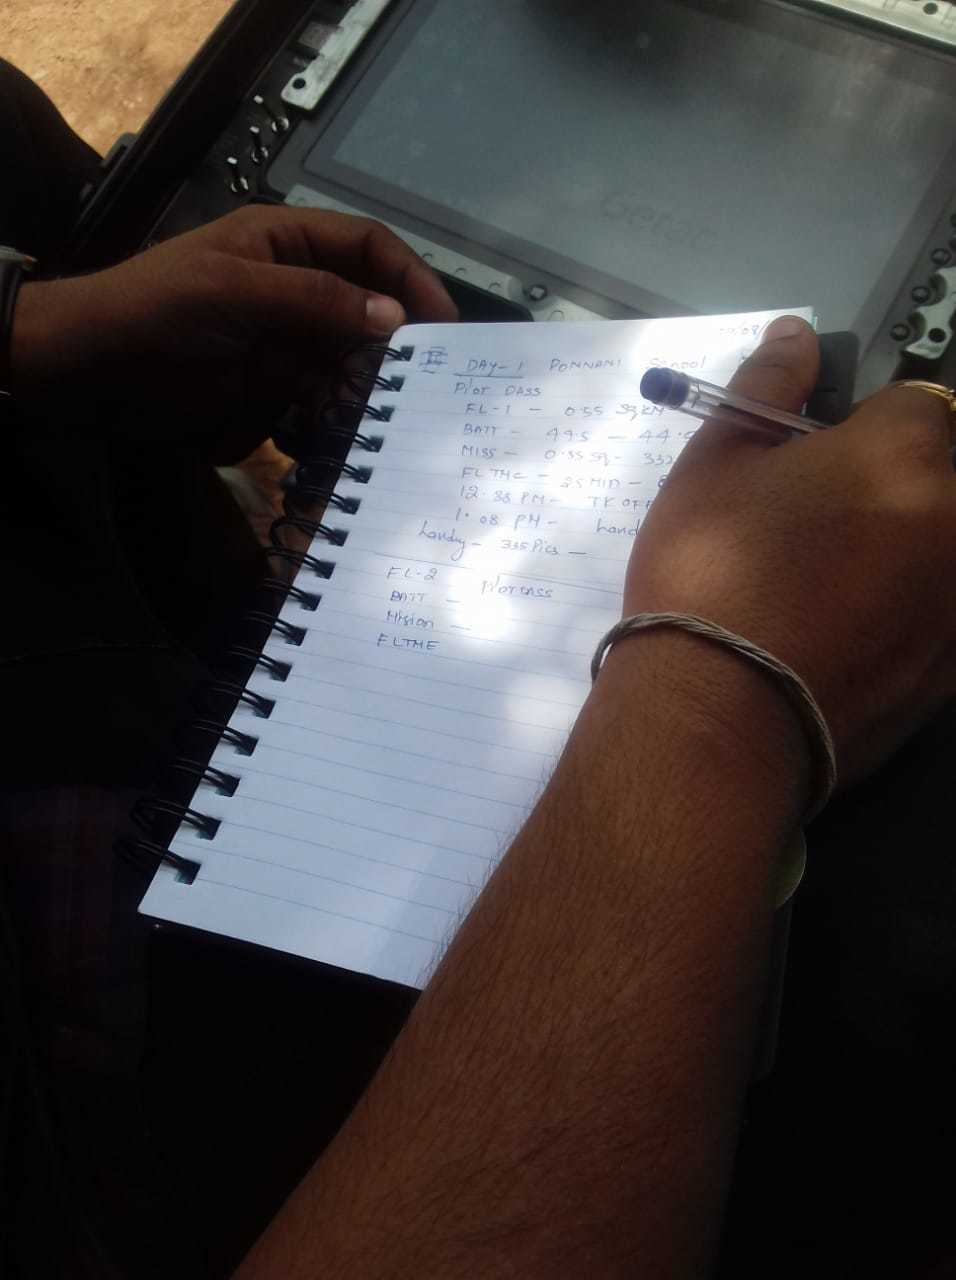 Getac
DAY-1 PONNANI School
Pilot DASS
FL-1 - 0.55 SqKM
BATT - 49.5 - 44.
MISS - 0.55 Sq - 332
FLTME - 25 MIN -
12.38 PM - TK OFF
1.08 PM - Land
Landg - 335 Pics -
FL-2 Pilot DASS
BATT -
Mision -
FLTME